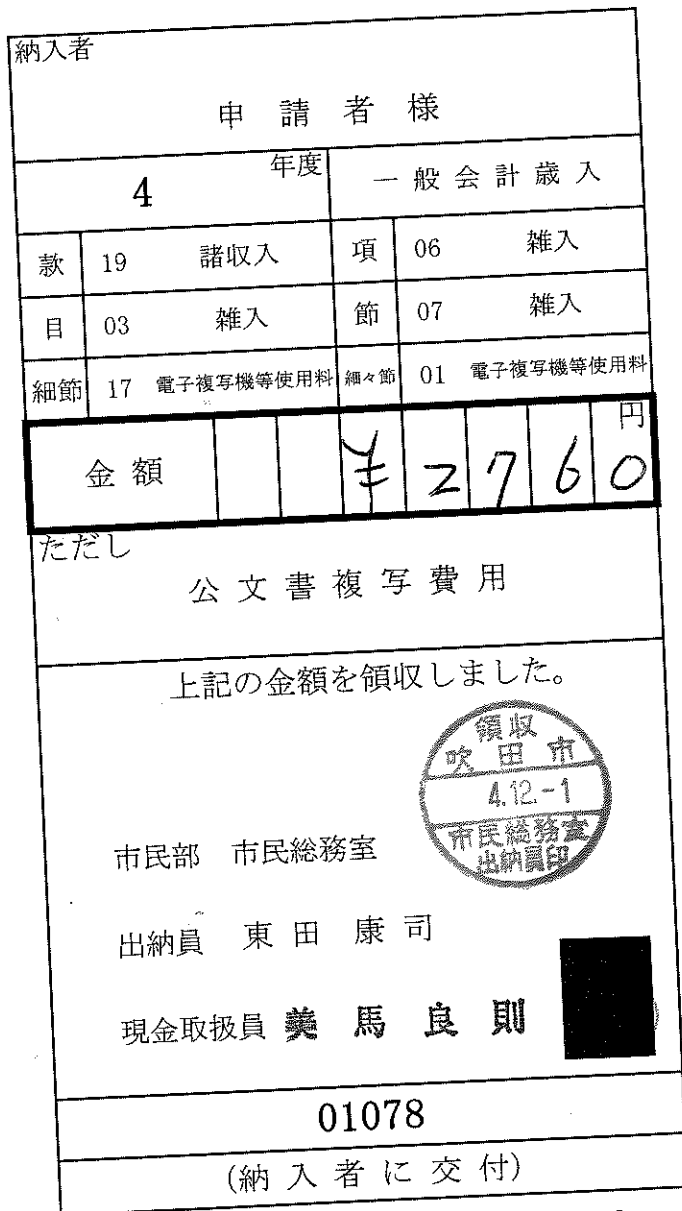 納入者
申請者様
4 年度 一般会計歳入
款 19 諸収入 項 06 雑入
目 03 雑入 節 07 雑入
細節 17 電子複写機等使用料 細々節 01 電子複写機等使用料
金額 ¥2760 円
ただし
公文書複写費用
上記の金額を領収しました。
領収
吹田市
4.12.-1
市民総務室
出納員印
市民部 市民総務室
出納員 東田 康司
現金取扱員 美馬良則
01078
(納入者に交付)